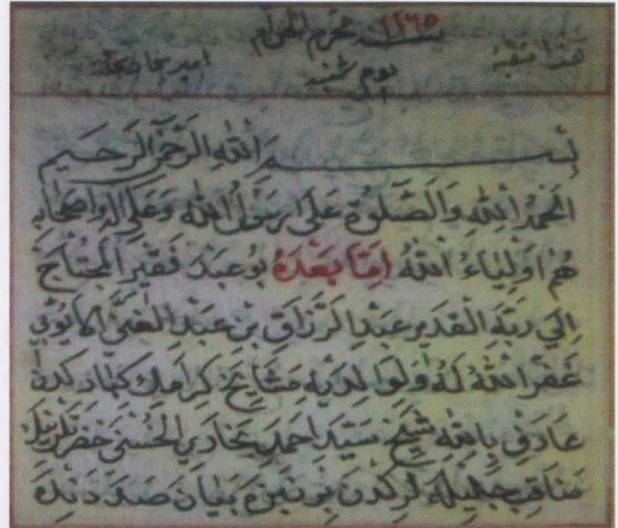 هذا منقبة ١٢٦٥ محرم الحرام امير بخارى
يوم شنبه
بِسْمِ اللهِ الرَّحْمٰنِ الرَّحِيمِ
اَلْحَمْدُ لِلّٰهِ وَالصَّلٰوةُ عَلَى رَسُولِ اللهِ وَعَلَى اٰلِهِ وَاَصْحَابِهِ
هُمْ اَوْلِيَاءُ اللهِ اَمَّا بَعْدَهُ بُو عَبْدِ فَقِيرِ الْمُحْتَاجِ
اِلَى رَبِّهِ الْقَدِيرِ عَبْدِ الرَّزَّاقِ بْنِ عَبْدِ الْغَنِيِّ
غَفَرَ اللهُ لَهُ وَلِوَالِدَيْهِ مَشَايِخِ كِرَامِكْ كِبَارِندَنْ
عَارِفِ بِاللهِ شَيْخْ سَيِّدْ اَحْمَدْ بُخَارِي الْحُسَيْنِي حَضْرَتْلَرِينِكْ
مَنَاقِبِ جَلِيلَهْ لَرِندَنْ بِرْ نَبْذَه بَيَانْ صَدَدِندَه